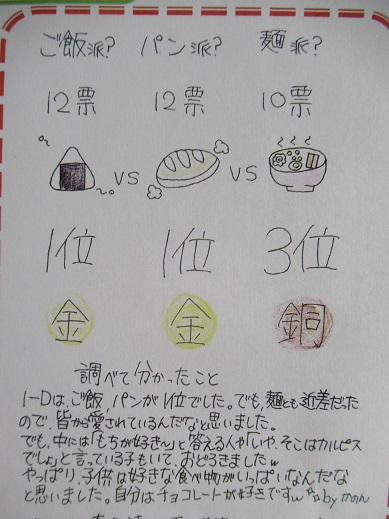 ご飯派? パン派? 麺派?
12票 12票 10票
VS VS
1位 1位 3位
金 金 銅
調べて分かったこと
1-Dは、ご飯、パンが1位でした。でも、麺とも近差だった
ので、皆から愛されているんだなと思いました。
でも、中には「もちが好き〜」と答える人や「いや、そこはカルピス
でしょ」と言っている子もいて、おどろきましたw
やっぱり、子供は好きな食べ物がいっぱいなんだな
と思いました。自分はチョコレートが好きですw by mon